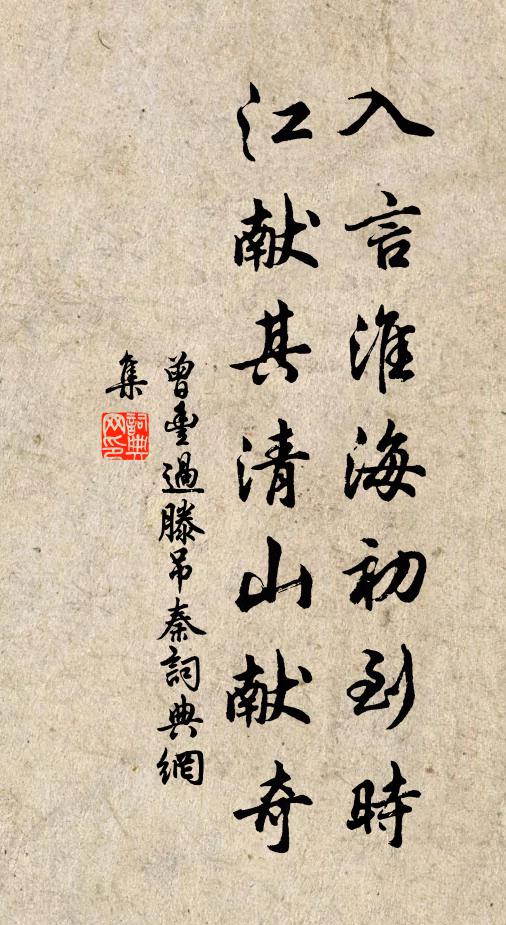 入言淮海初到時
江献其清山献奇
曾豊過滕吊秦詞典網
集
詞典
网印